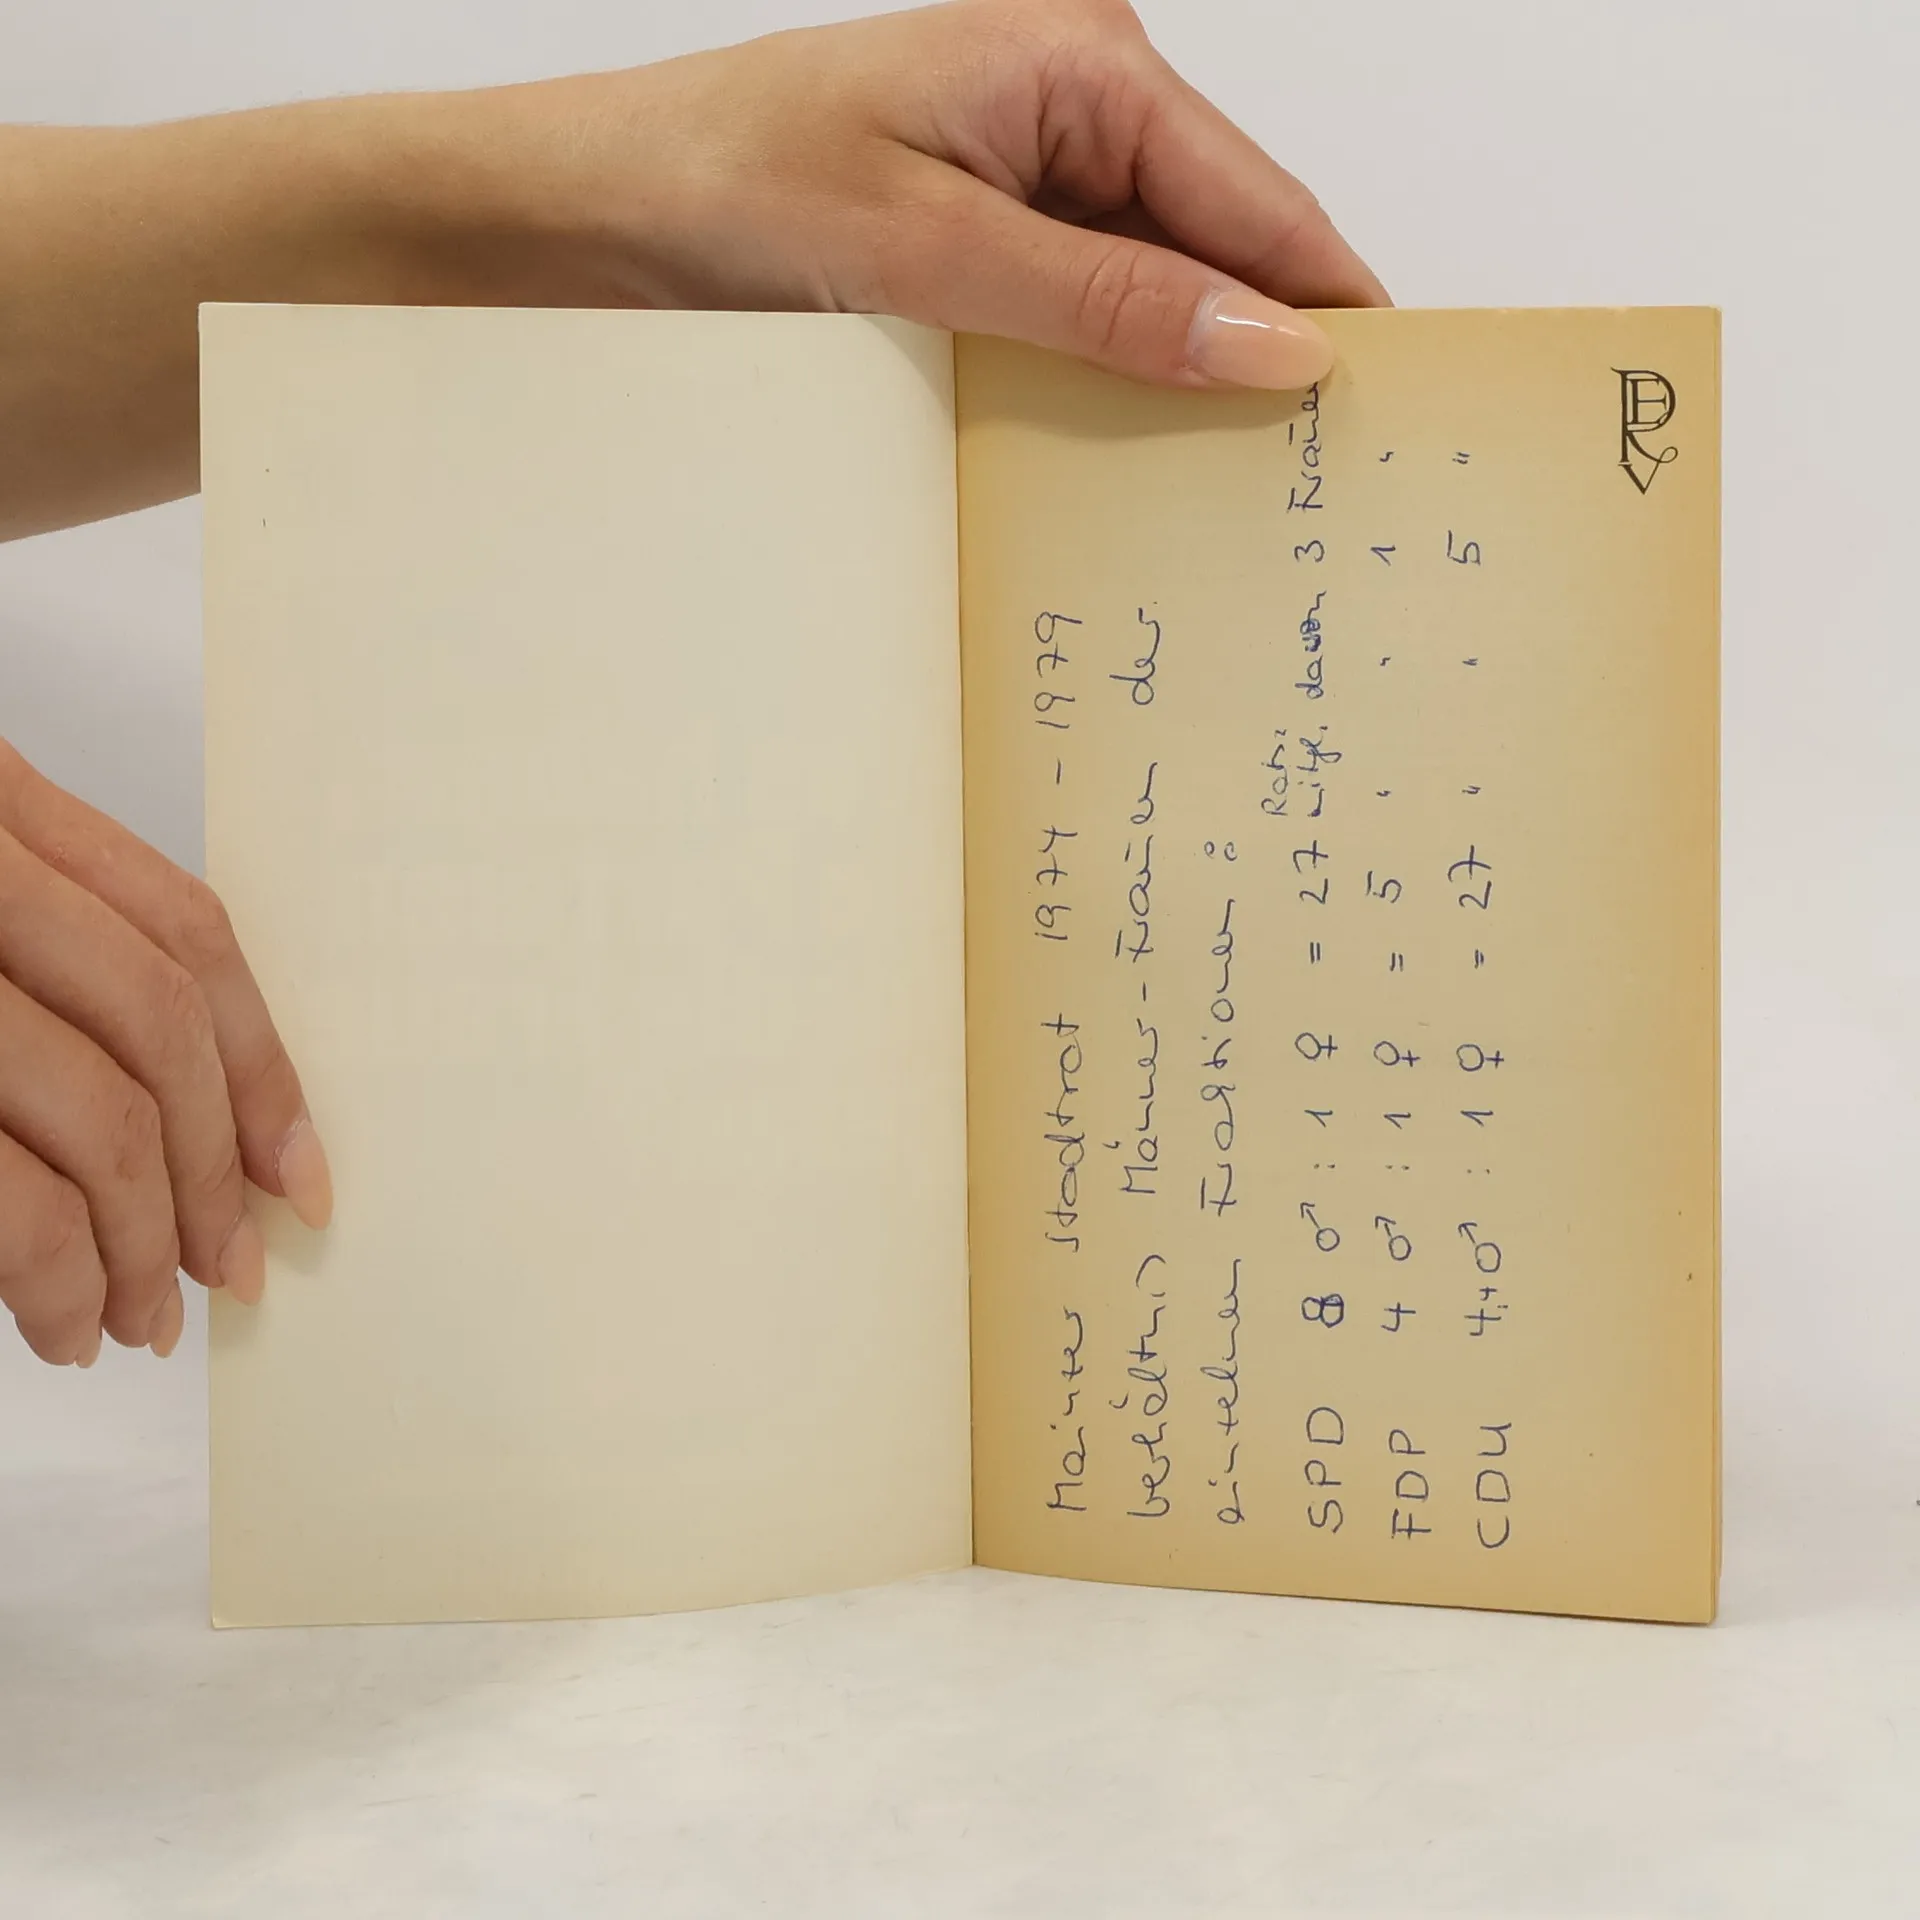 Mainzer Stadtrat 1974 - 1979
verhältnis Männer - Frauen der
einzelnen Fraktionen :
Rats:
SPD 8 ♂ : 1 ♀ = 27 mitgl. davon 3 Frauen
FDP 4 ♂ : 1 ♀ = 5 " " 1 "
CDU 4,4 ♂ : 1 ♀ = 27 " " 5 "